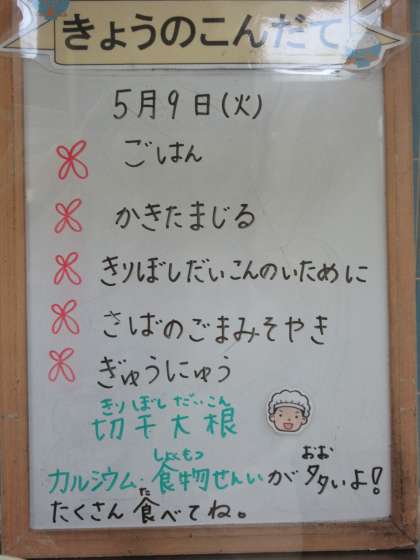 きょうのこんだて
5月9日(火)
ごはん
かきたまじる
きりぼしだいこんのいために
さばのごまみそやき
ぎゅうにゅう
きりぼしだいこん
切干大根
しょくもつ おお
カルシウム・食物せんいが多いよ!
た
たくさん食べてね。